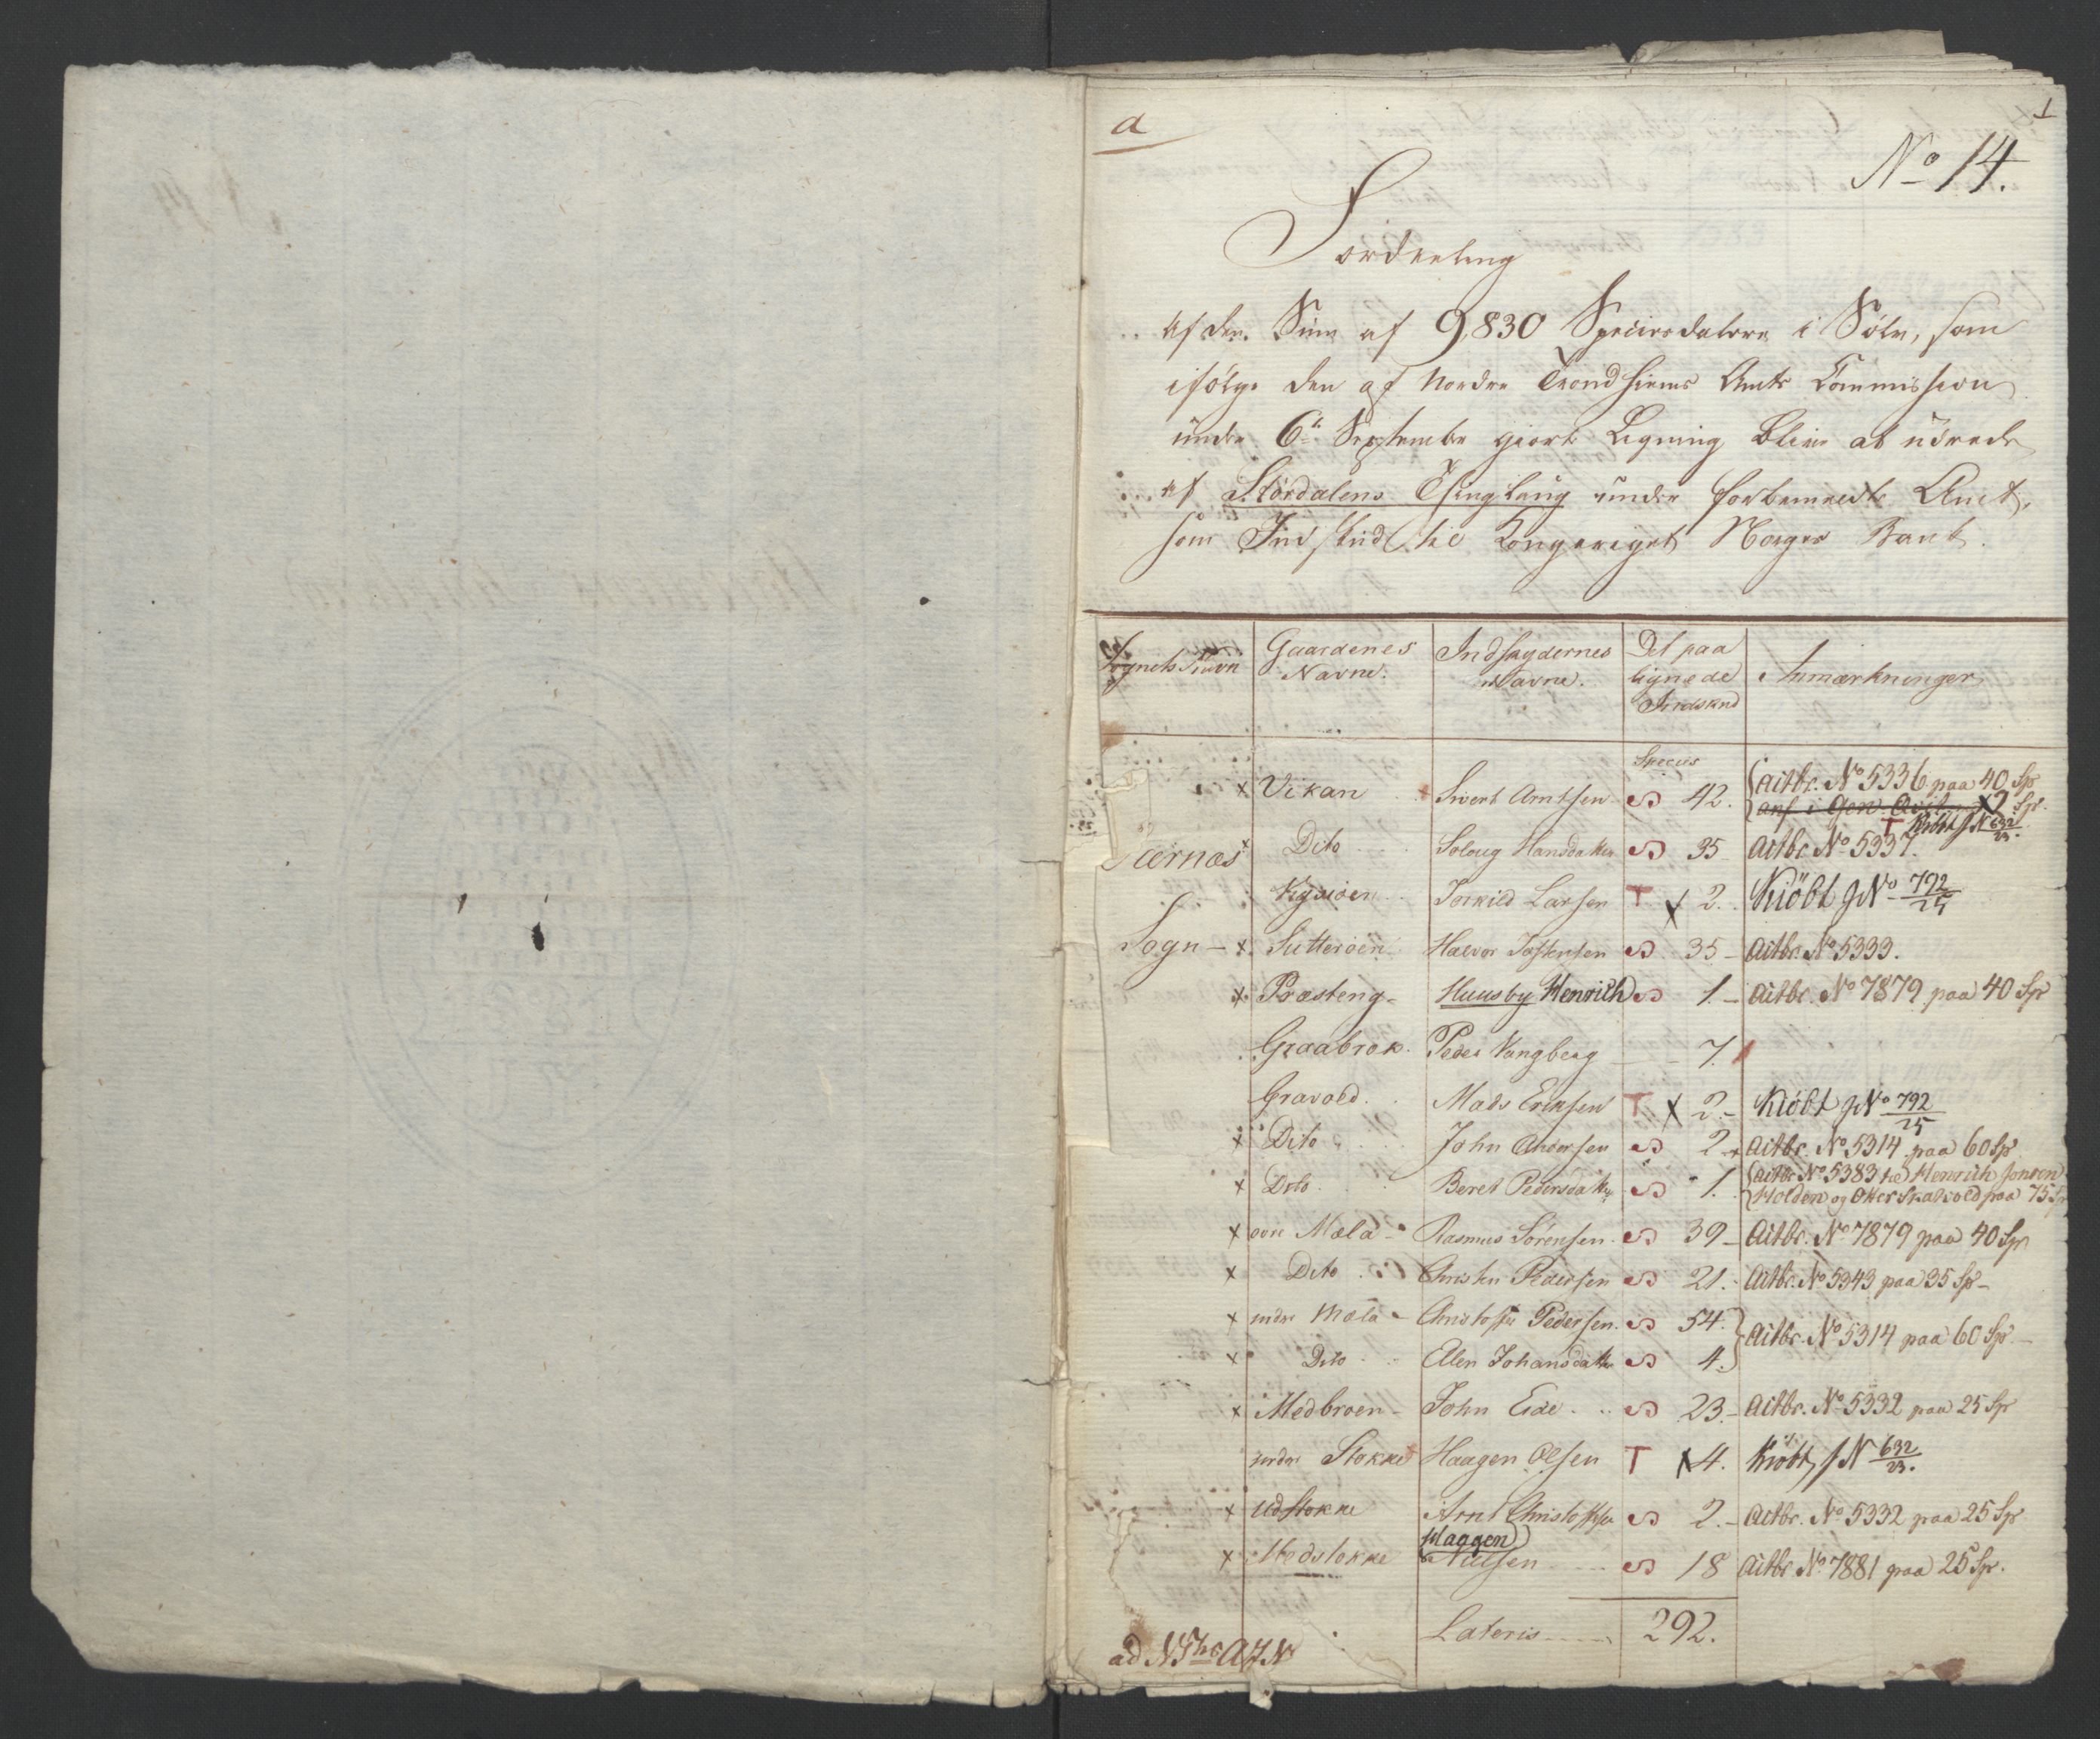 a
1
No 14.
Fordeeling
Af den Sum af 9,830 Speciesdalere i Sølv, som
ifölge den af Nordre Trondhiems Amts Commission
under 6te September giorte Ligning bliver at udrede
af Stördalens Thinglaug under forbemeldte Amt,
som Indskud til Kongeriget Norges Bank.
Sognets Navn | Gaardenes Navne. | Indskydernes Navne. | Det paa lignede Indskud | Anmærkninger
Species
x Vikan | Sivert Arntsen | S 42. | Aitbr. No 5336 paa 40 Sp
2 Sp.
T Kiöbt f N 632/23.
Værnæs x Dito | Soloug Hansdatter | S 35 | Aitbr. No 5337.
Torkild Larsen | T x 2. | Kiöbt f No 792/25
Sogn x Sutteröen | Halvor Torstensen | S 35 | Aitbr. No 5333.
x Præsteng | Huusby Henrich | S 1. | Aitbr. No 7879 paa 40 Sp
Graabrok. | Peder Vangberg | 7.
Gravold. | Mads Eriksen | T x 2. | Kiöbt f No 792/25
x Dito | John Andersen | S 2 | Aitbr. No 5314 paa 60 Sp
x Dito | Beret Pedersdatter | S 1. | Aitbr No 5383 til Henrich Jonsen
Holden og Oker Skatvold paa 75 Sp
x ovre Mæla | Rasmus Sörensen | S 39 | Aitbr. No 7879 paa 40 Sp
x Dito | Christen Pedersen | S 21. | Aitbr. No 5343 paa 35 Sp
x nedre Mæla | Christoffer Pedersen. | S 54. | Aitbr. No 5314 paa 60 Sp
x Dito | Ellen Johansdatter | S 4.
x Medbroen | John Eide | S 23. | Aitbr. No 5332 paa 25 Sp
nedre Stokke | Haagen Olsen | T x 4. | Kiöbt f N 632/23.
x Udstokke | Arnt Christoffer | S 2. | Aitbr. No 5332 paa 25 Sp
Haagen
x Medstokke | Nielsen | S 18 | Aitbr No 7881 paa 25 Sp.
Lateris | 292.